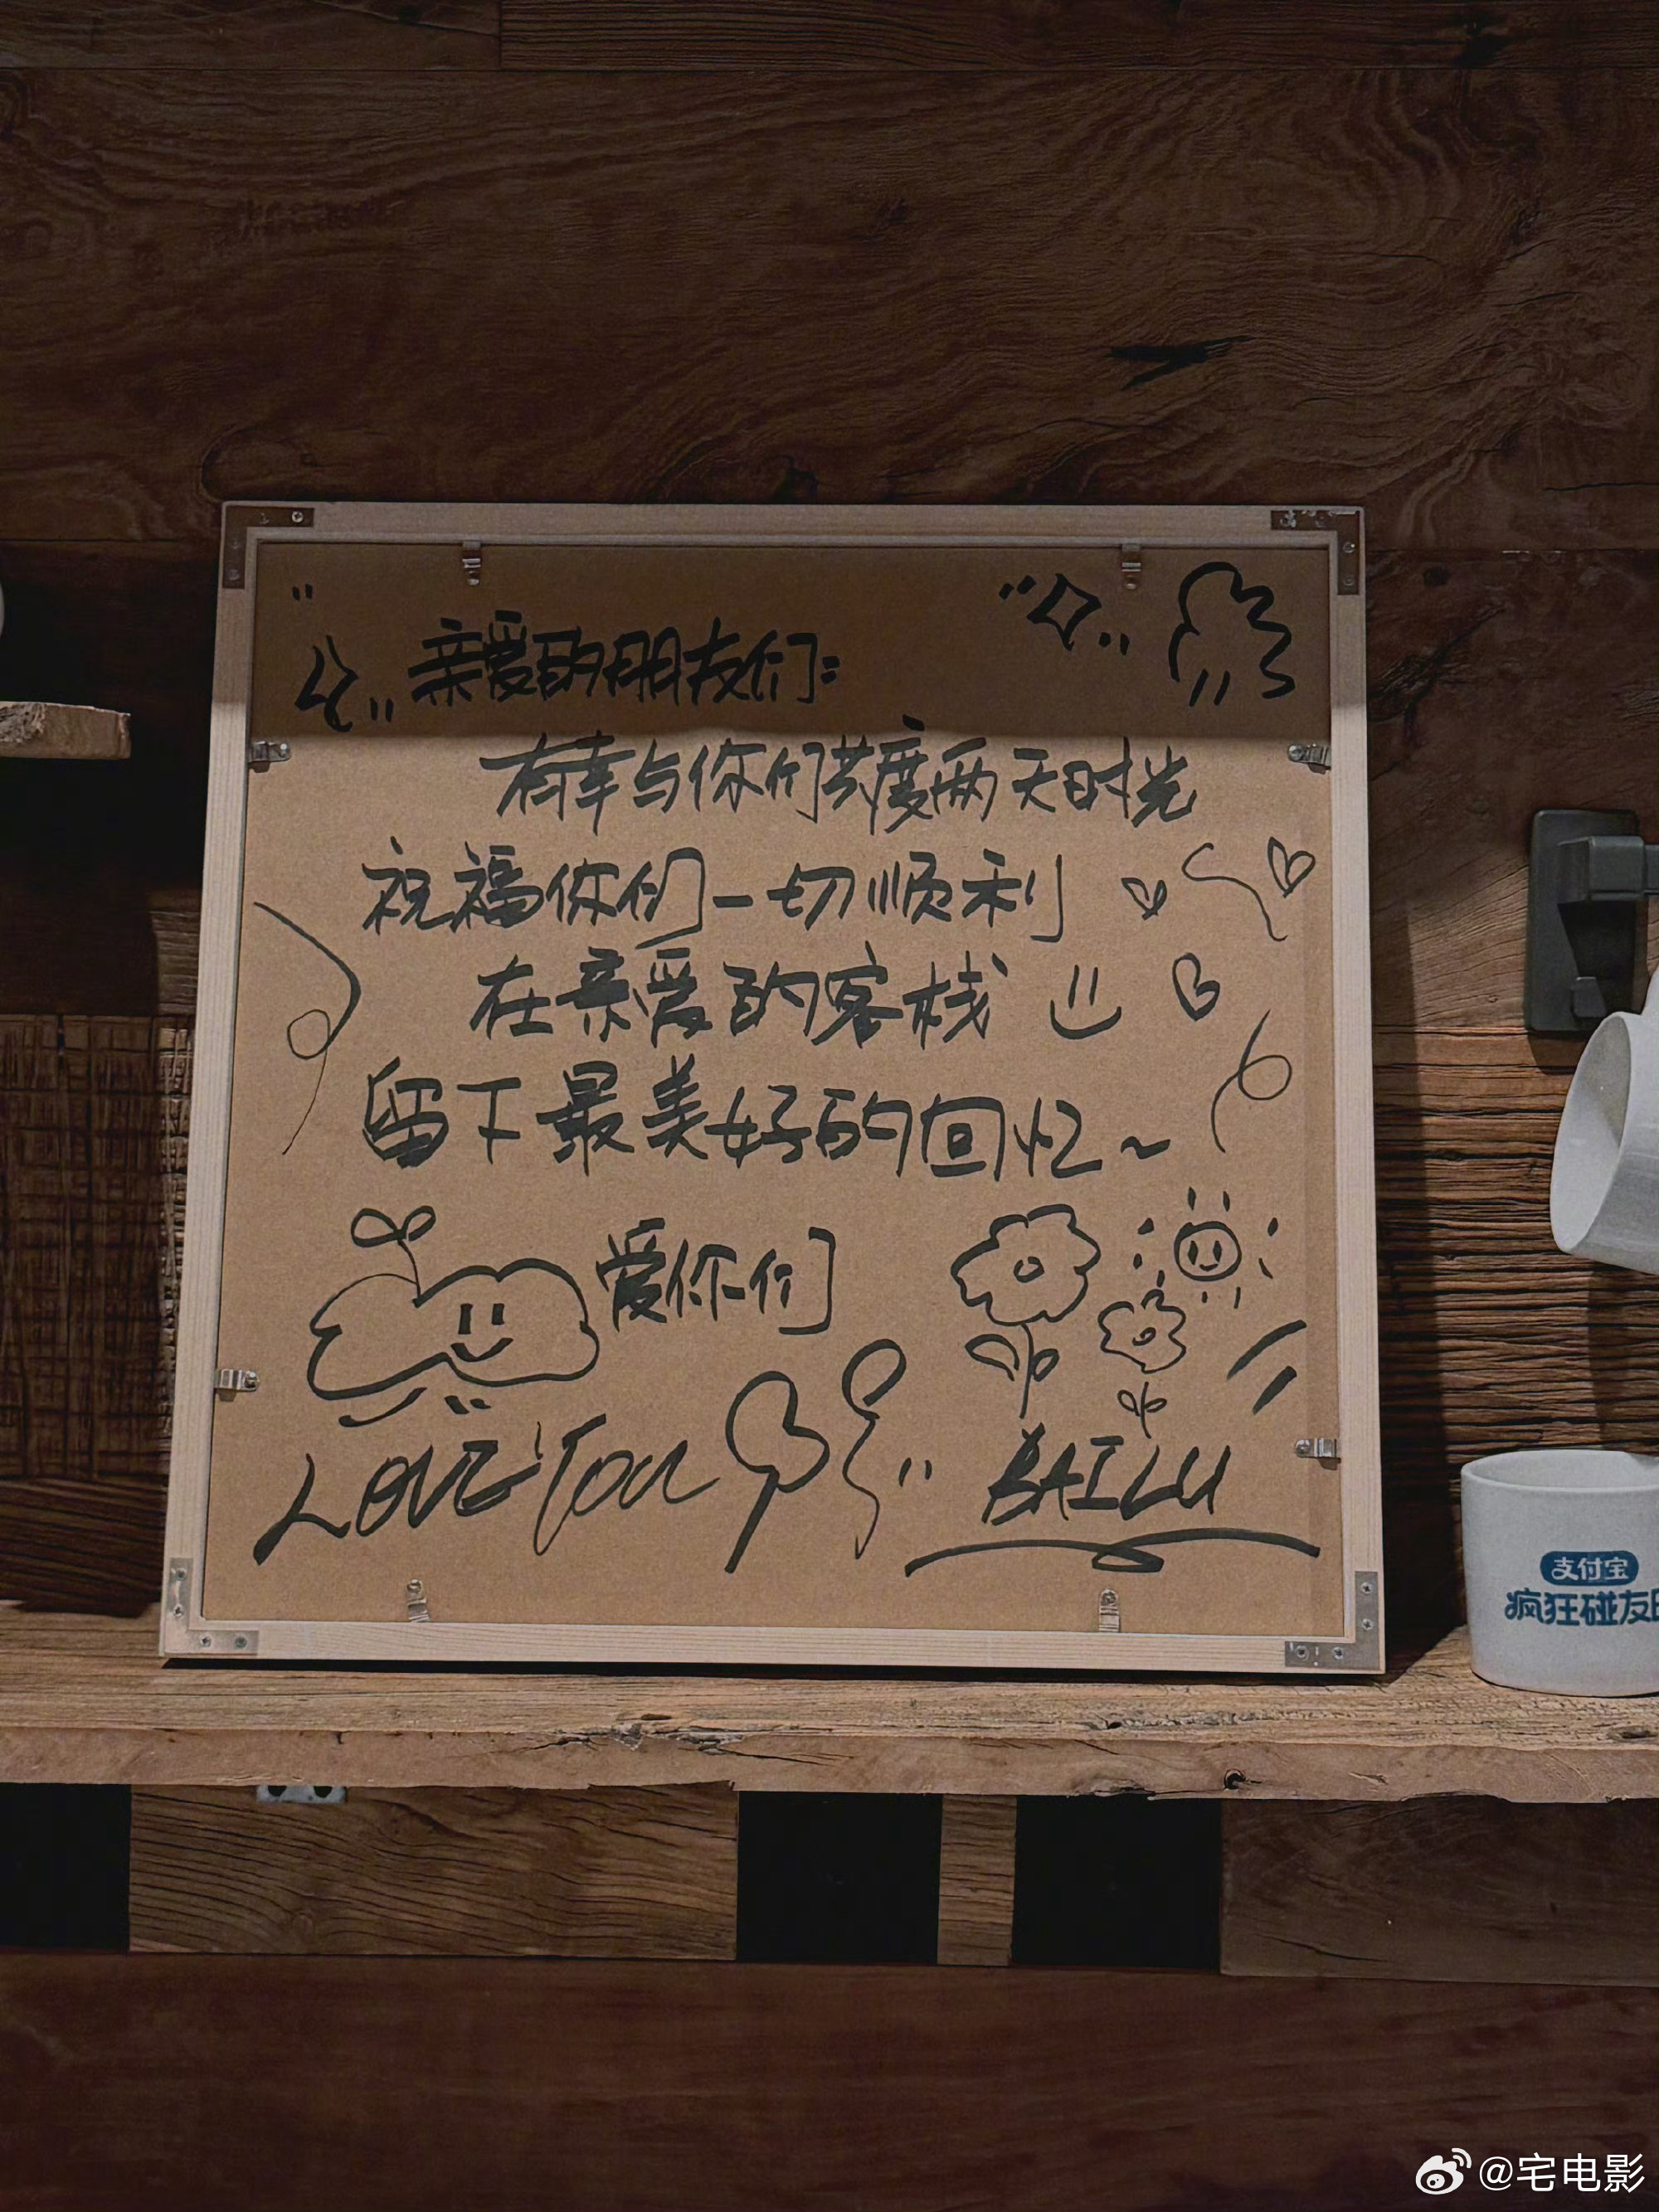 亲爱的朋友们:
有幸与你们共度两天时光
祝福你们一切顺利
在亲爱的客栈
留下最美好的回忆~
爱你们
LOVE YOU
BAILU
支付宝
疯狂碰友
@宅电影